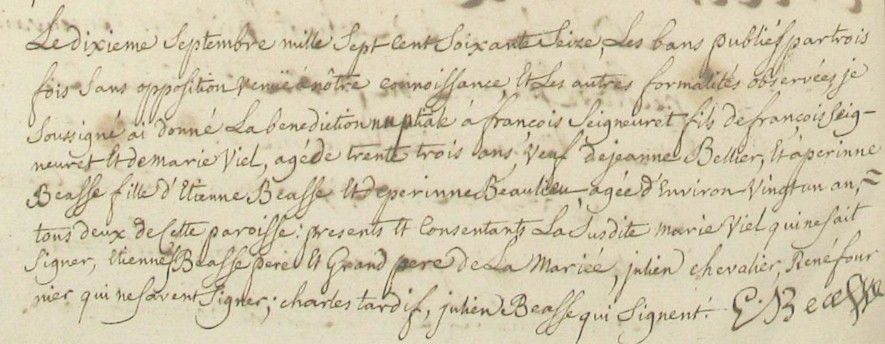 Le dixieme Septembre mille Sept Cent Soixante Seize, Les bans publiés par trois
fois Sans opposition venüe à nôtre connoissance, Et Les autres formalités observées je
Soussigné ai donné La benediction nuptiale à françois Seigneuret fils de françois Seig-
neuret Et de marie Viel, agé de trente trois ans, Veuf de jeanne Bellier, Et à perinne
Beasse fille d'Etienne Beasse Et de perinne Beaulieu, agée d'Environ Vingt un an,=
tous deux de Cette paroisse: presents Et Consentants La Susdite marie Viel qui ne sait
Signer, Etiennes Beasse pere Et Grand pere de La Mariee, julien chevalier, René four
nier qui ne savent Signer; charles tardif, julien Beasse qui Signent. E. Beasse